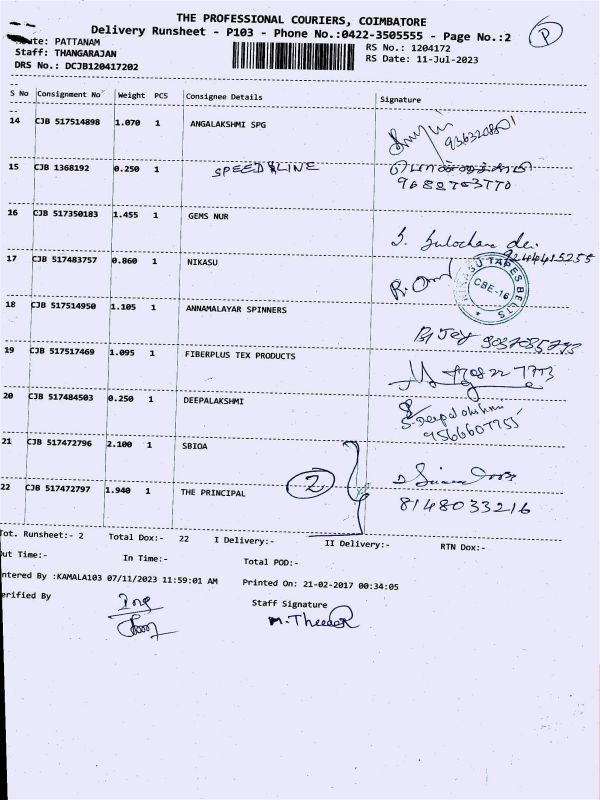 THE PROFESSIONAL COURIERS, COIMBATORE
Delivery Runsheet - P103 - Phone No.:0422-3505555 - Page No.:2
P
ute: PATTANAM
RS No.: 1204172
Staff: THANGARAJAN
RS Date: 11-Jul-2023
DRS No.: DCJB120417202
S No Consignment No Weight PCS Consignee Details Signature
14 CJB 517514898 1.070 1 ANGALAKSHMI SPG
15 CJB 1368192 0.250 1 SPEED LINE
9688753770
16 CJB 517350183 1.455 1 GEMS NUR
S. Sulochana dei
9244415255
17 CJB 483757 0.860 1 NIKASU
TAPES BELTS
CBE-16
18 CJB 517514950 1.105 1 ANNAMALAYAR SPINNERS
19 CJB 517517469 1.095 1 FIBERPLUS TEX PRODUCTS
20 CJB 517484503 0.250 1 DEEPALAKSHMI
S. Deepalakshmi
9566607755
21 CJB 517472796 2.100 1 SBIOA
2
22 CJB 517472797 1.940 1 THE PRINCIPAL
8148033216
Tot. Runsheet:- 2 Total Dox:- 22 I Delivery:- II Delivery:- RTN Dox:-
Out Time:- In Time:- Total POD:-
ntered By :KAMALA103 07/11/2023 11:59:01 AM Printed On: 21-02-2017 00:34:05
erified By
Staff Signature